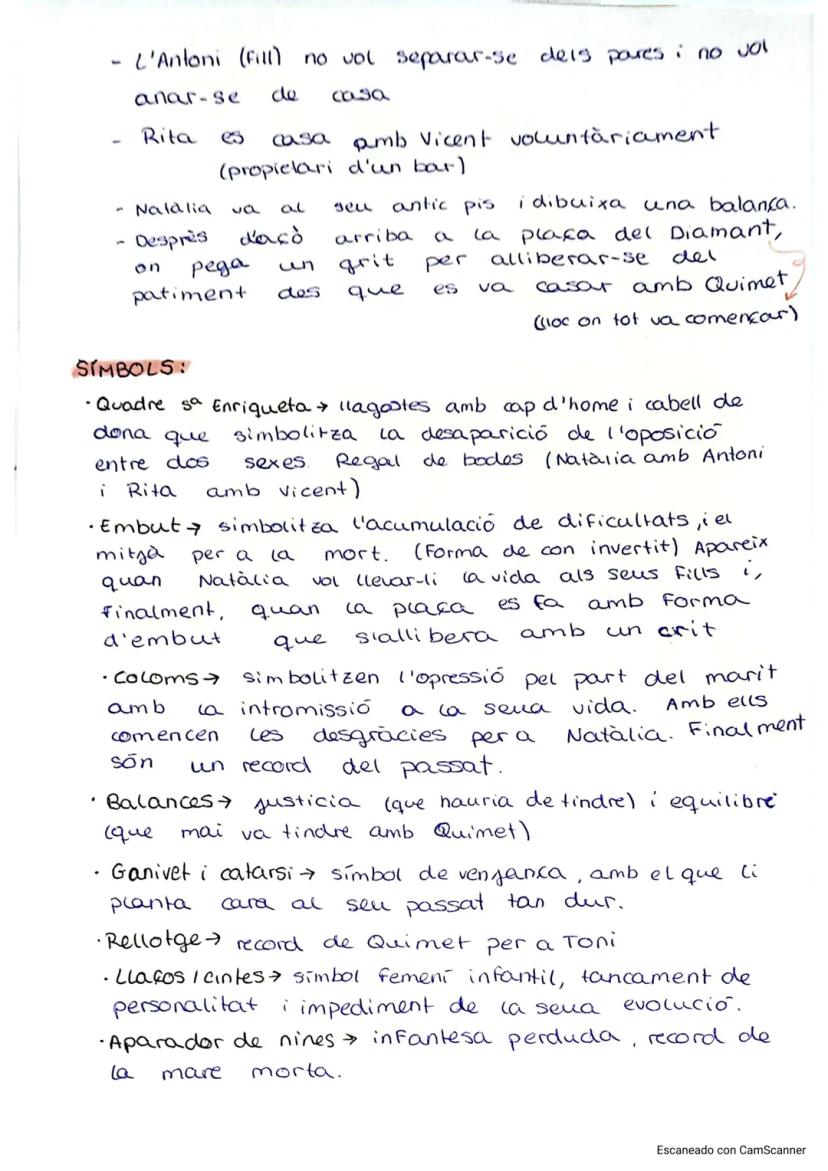 - L'Antoni (fill) no vol separar-se dels pares i no vol
anar-se de casa
- Rita es casa amb Vicent voluntàriament
(propietari d'un bar)
- Natàlia va al seu antic pis i dibuixa una balança.
- Desprès d'açò arriba a la plaça del Diamant,
on pega un grit per alliberar-se del
patiment des que es va casar amb Quimet
(lloc on tot va començar)
SÍMBOLS:
· Quadre sª Enriqueta → llagostes amb cap d'home i cabell de
dona que simbolitza la desaparició de l'oposició
entre dos sexes. Regal de bodes (Natàlia amb Antoni
i Rita amb Vicent)
· Embut → simbolitza l'acumulació de dificultats, i el
mitjà per a la mort. (Forma de con invertit) Apareix
quan Natàlia vol llevar-li la vida als seus fills i,
finalment, quan la plaça es fa amb forma
d'embut que s'allibera amb un crit
· Coloms → simbolitzen l'opressió pel part del marit
amb la intromissió a la seua vida. Amb ells
comencen les desgràcies per a Natàlia. Finalment
són un record del passat.
· Balances → justicia (que hauria de tindre) i equilibre
(que mai va tindre amb Quimet)
· Ganivet i catarsi → símbol de venjança, amb el que li
planta cara al seu passat tan dur.
· Rellotge → record de Quimet per a Toni
· Llaços / cintes → símbol femení infantil, tancament de
personalitat i impediment de la seua evolució.
· Aparador de nines → infantesa perduda, record de
la mare morta.
Escaneado con CamScanner